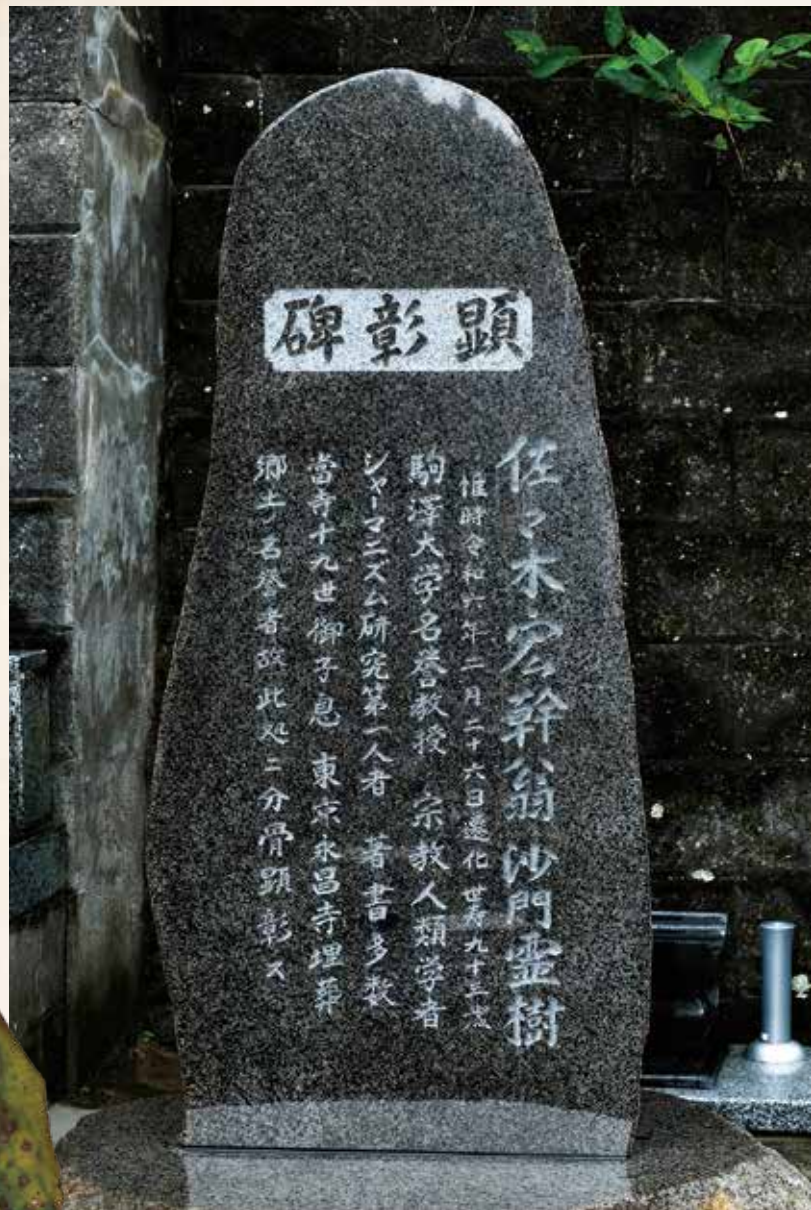 顕彰碑
佐々木宏幹翁 沙門霊樹
惟時令和六年二月二十六日遷化 世寿九十三歳
駒澤大学名誉教授 宗教人類学者
シャーマニズム研究第一人者 著書多数
當寺十九世御子息 東京永昌寺埋葬
郷土名誉者故此処ニ分骨顕彰ス